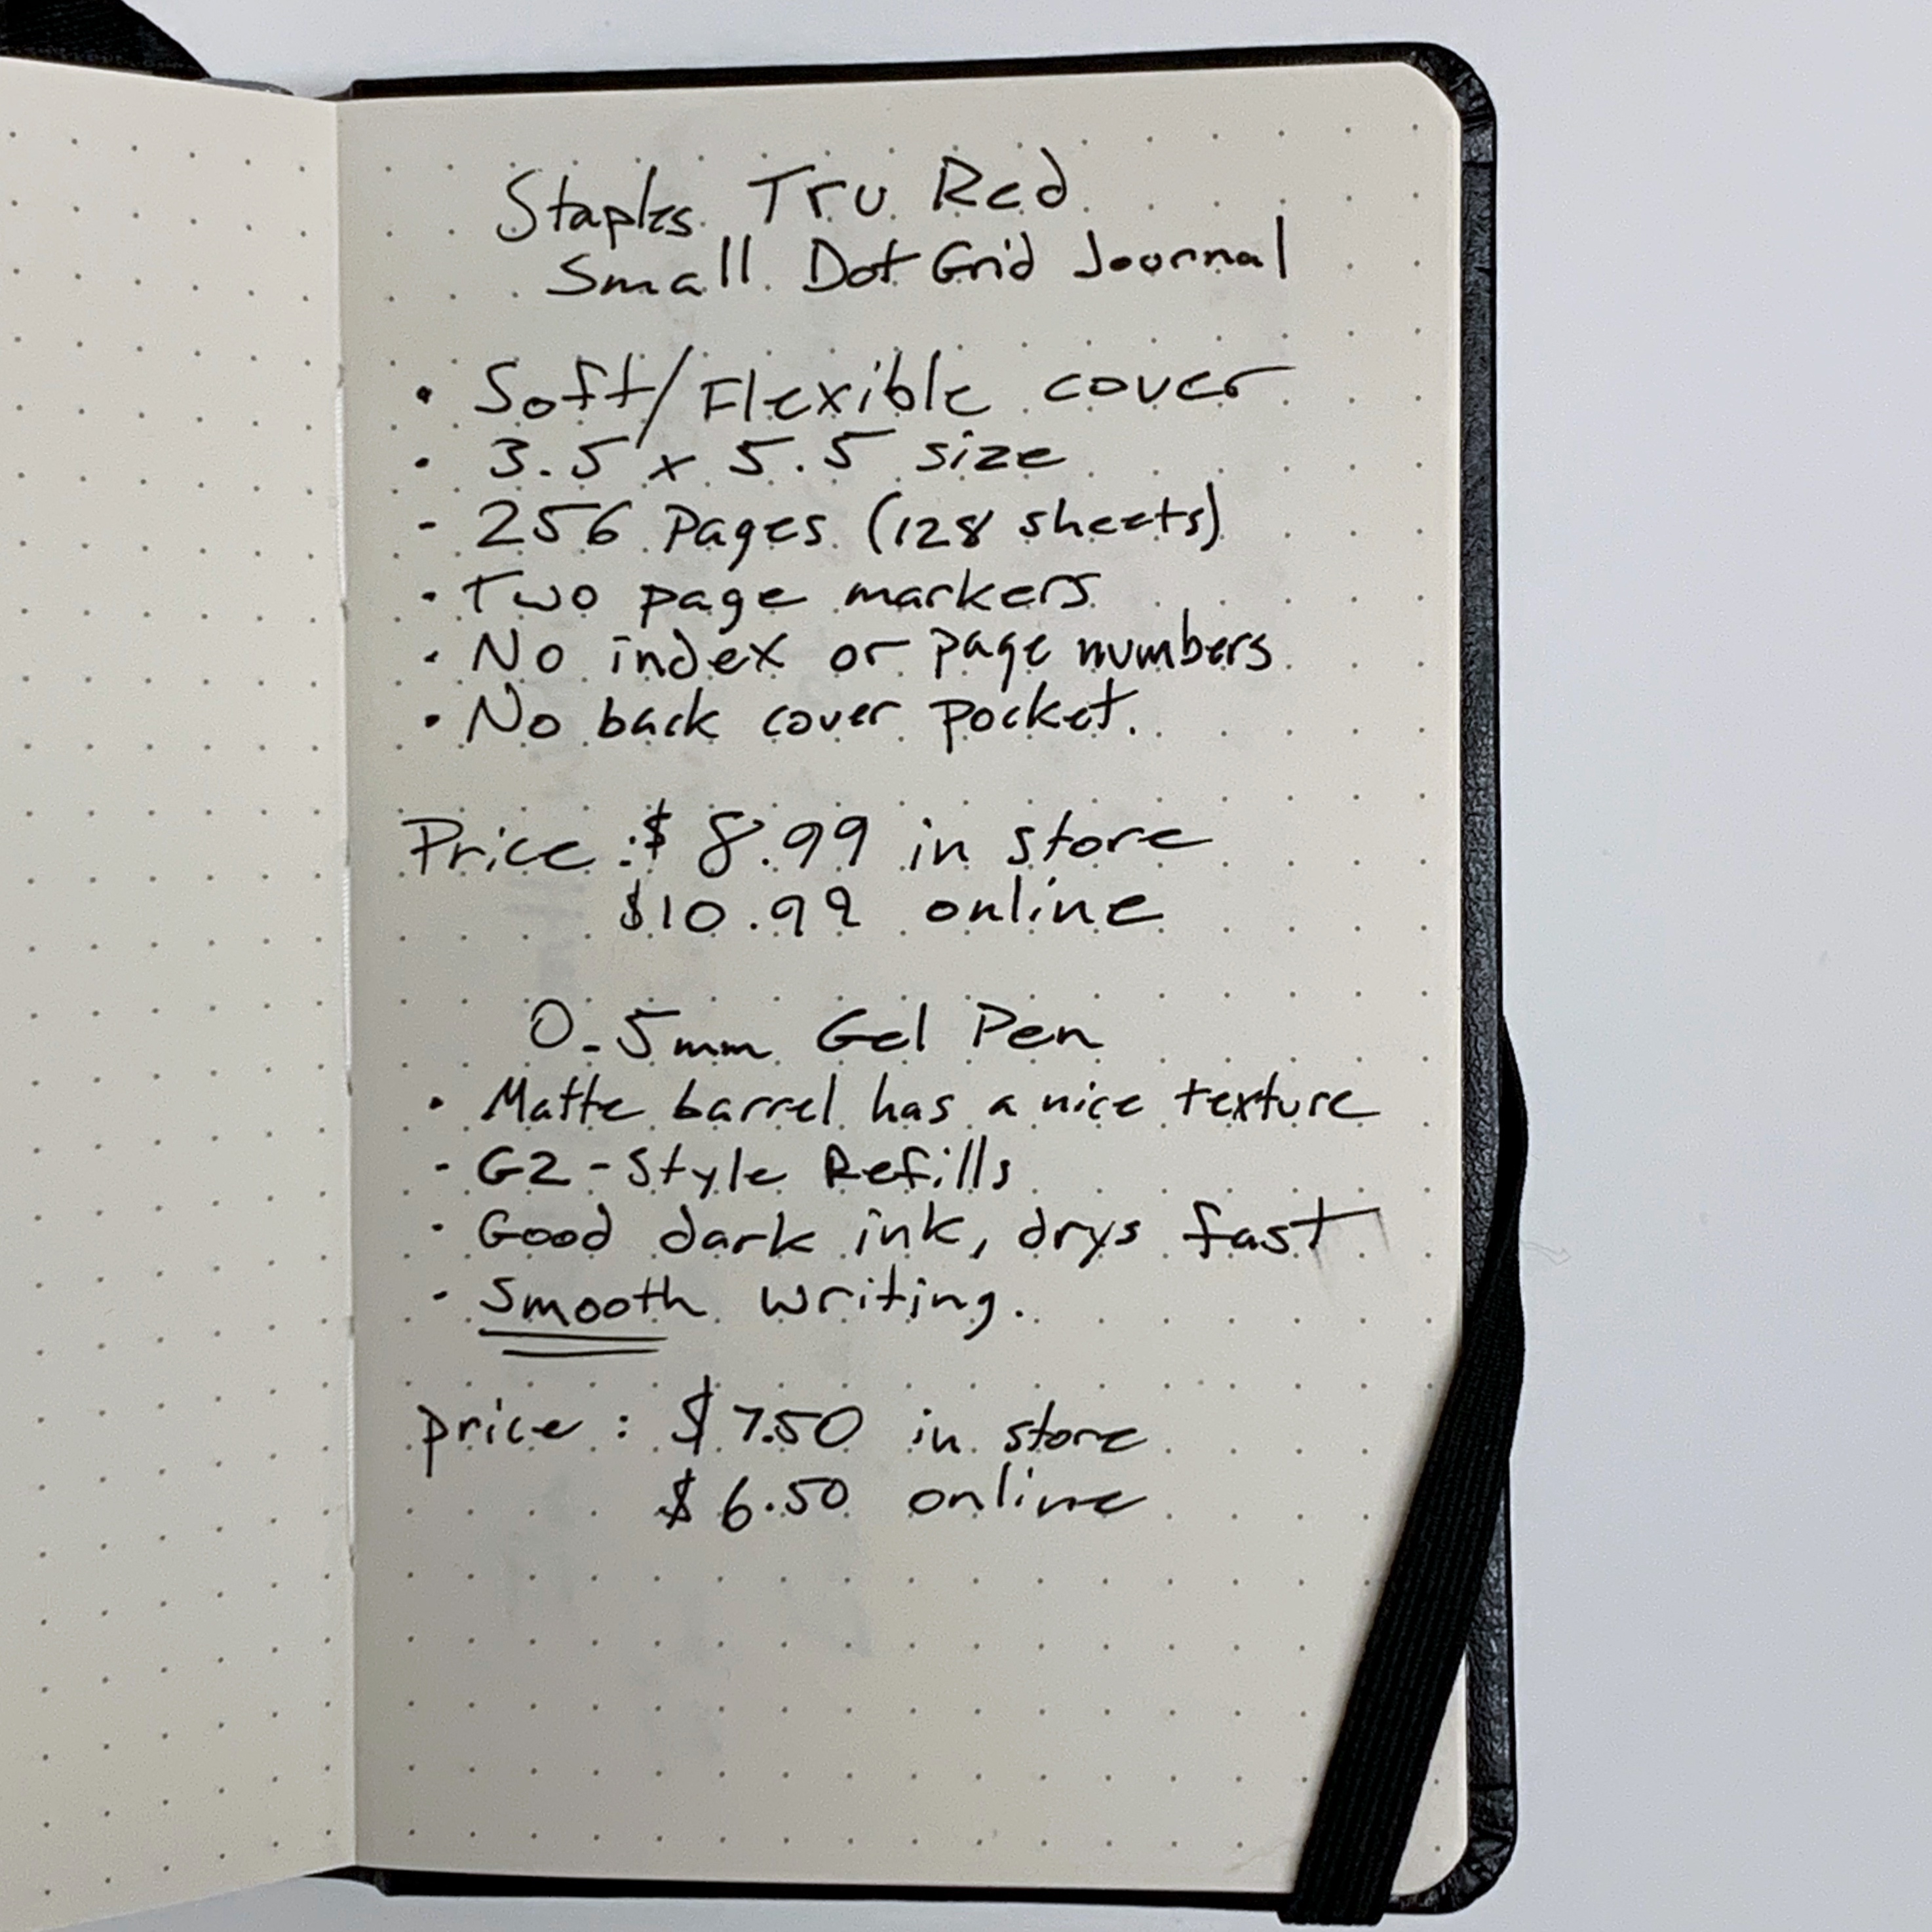 Staples Tru Red
Small Dot Grid Journal
• Soft/Flexible cover
• 3.5 x 5.5 size
- 256 Pages (128 sheets)
• Two page markers
• No index or page numbers
• No back cover pocket.
Price: $8.99 in store
$10.99 online
0.5mm Gel Pen
• Matte barrel has a nice texture
- G2-Style Refills
• Good dark ink, drys fast
• Smooth writing.
price: $7.50 in store
$6.50 online